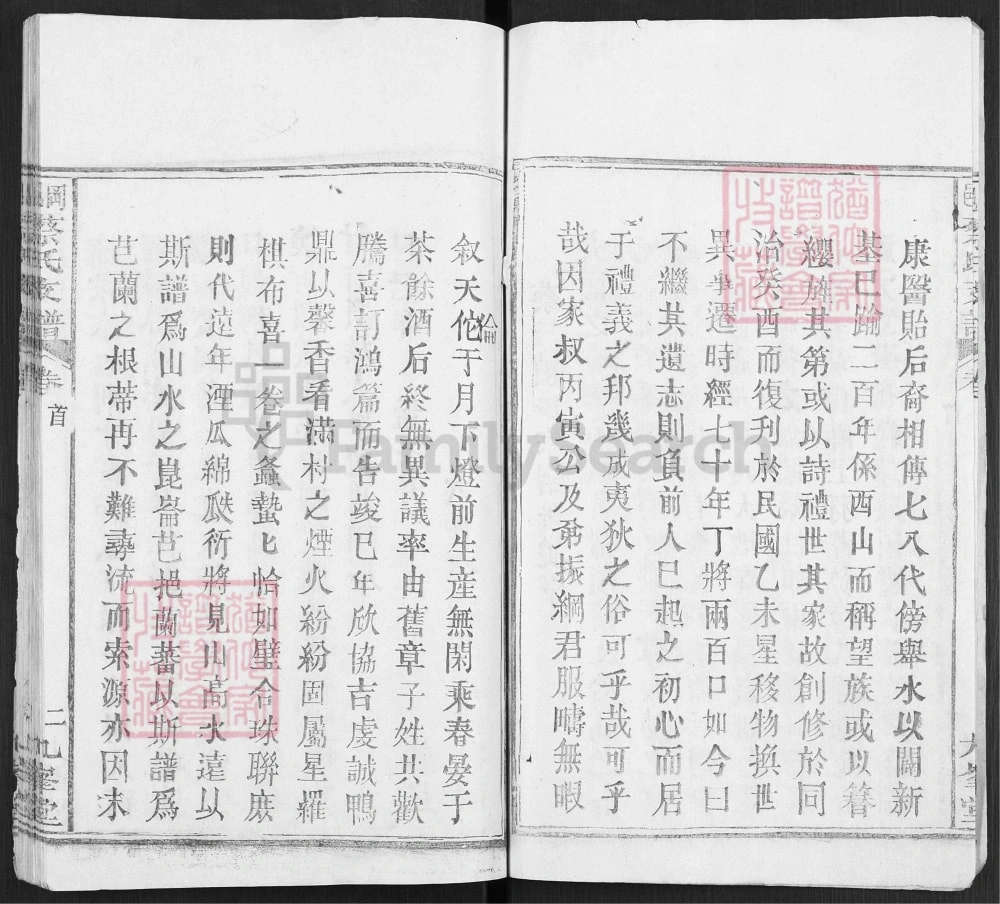 康醫貽后裔相傳七八代傍舉水以闢新
基已踰二百年係西山而稱望族或以簪
纓旌其第或以詩禮世其家故創修於同
治癸酉而復刊於民國乙未星移物換世
異事遷時經七十年丁將兩百口如今曰
不繼其遺志則負前人已起之初心而居
于禮義之邦幾成夷狄之俗可乎哉可乎
哉因家叔丙寅公及弟振綱君服疇無暇
叙天倫佗于月下燈前生產無閑乘春晏于
茶餘酒后終無異議率由舊章子姓共歡
騰喜訂鴻篇而告竣巳年欣協吉虔誠鴨
鼎以馨香看滿村之煙火紛紛固屬星羅
棋布喜一卷之螽蟄匕恰如璧合珠聯庶
則代遠年湮瓜綿瓞衍將見山高水遠以
斯譜爲山水之崑崙芑挹蘭蕃以斯譜爲
芑蘭之根蒂再不難尋流而索源亦因末
蔡氏支譜
卷
首
二
九峯堂
FamilySearch